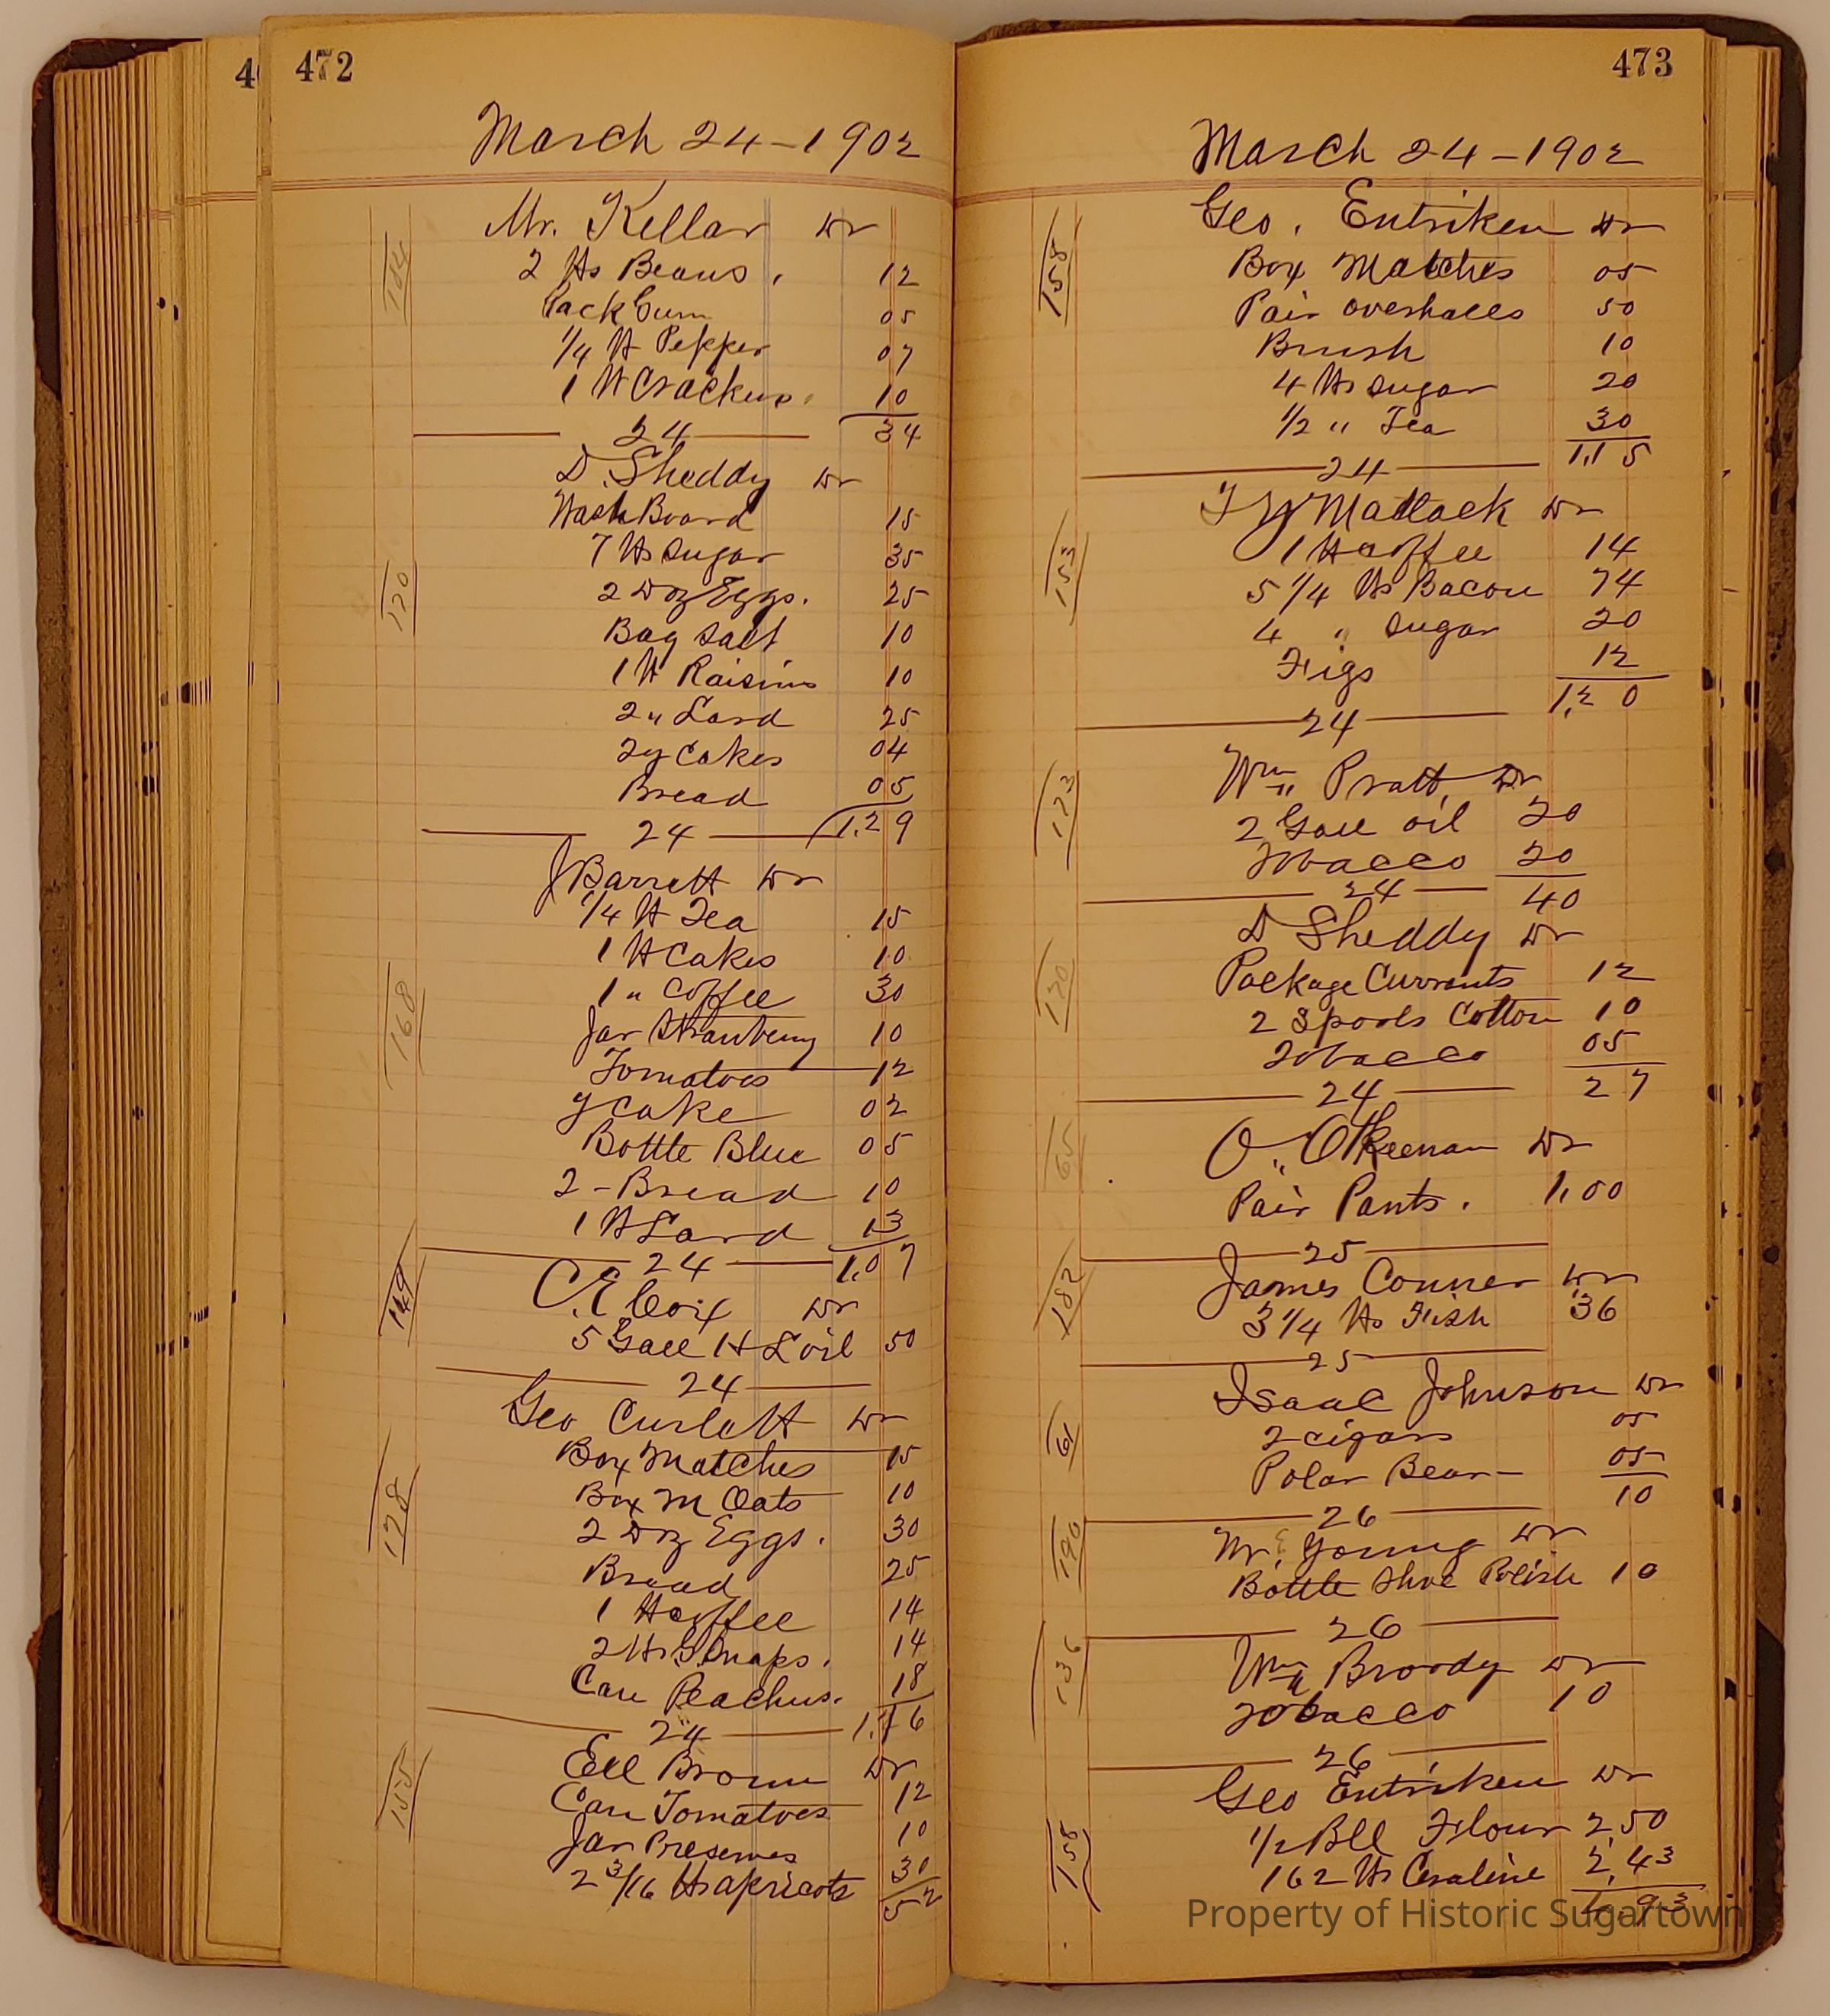 472
March 24-1902
104
Mr. Kellar Dr
2 lbs Beans. 12
Pack Gum 05
1/4 lb Pepper 07
1 lb Crackers. 10
24 34
D. Sheddy Dr
Wash Board 15
7 lbs Sugar 35
120
2 Doz Eggs. 25
Bag Salt 10
1 lb Raisins 10
2 " Lard 25
2 y Cakes 04
Bread 05
24 1.29
J Barrett Dr
1/4 lb Tea 15
1 lb Cakes 10
1 " Coffee 30
168
Jar Strawberry 10
Tomatoes 12
y Cake 02
Bottle Blue 05
2 - Bread 10
1 lb Lard 13
24 1.07
149
C.E. Coix Dr
5 Gall H L oil 50
24
Geo Curlett Dr
Box Matches 15
Box M Oats 10
178
2 Doz Eggs. 30
Bread 25
1 lb Coffee 14
2 lbs G. Snaps. 14
Can Peaches. 18
24 1.16
155
Ell Brown Dr
Can Tomatoes 12
Jar Preserves 10
2 3/16 lbs apricots 30
52
473
March 24-1902
158
Geo. Entriken Dr
Box Matches 05
Pair overhalls 50
Brush 10
4 lbs Sugar 20
1/2 " Tea 30
24 1.15
Matlack Dr
153
1 lb Coffee 14
5 1/4 lbs Bacon 74
4 " Sugar 20
Figs 12
24 1.20
173
Wm Pratt, Dr
2 Gall oil 20
Tobacco 20
24 40
D Sheddy Dr
120
Package Currants 12
2 Spools Cotton 10
Tobacco 05
24 27
65
O. O Keenan Dr
Pair Pants. 1.00
25
182
James Conner Dr
3 1/4 lbs Fish 36
25
61
Isaac Johnson Dr
2 cigars 05
Polar Bear - 05
26 10
190
Mr. Young Dr
Bottle Shoe Polish 10
26
136
Wm Broody Dr
Tobacco 10
26
Geo Entriken Dr
158
1/2 Bll Flour 2.50
162 lbs Ceraline 2.43
4.93
Property of Historic Sugartown